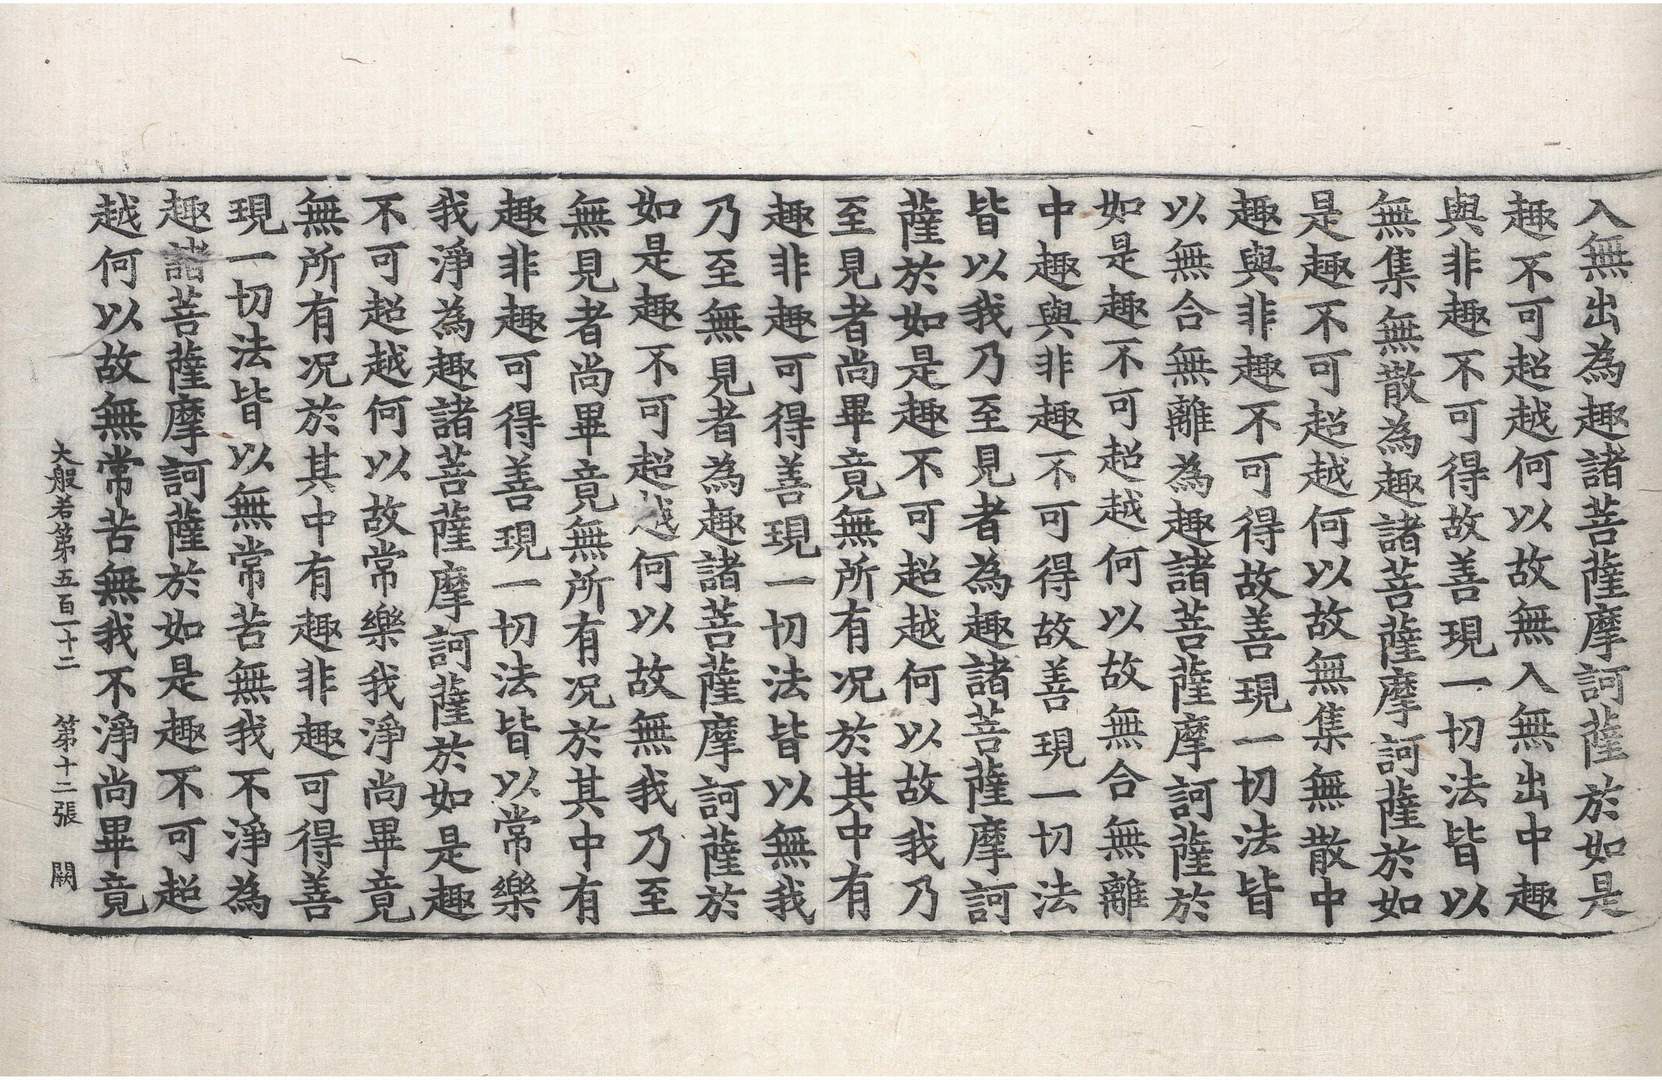 入無出為趣諸菩薩摩訶薩於如是
趣不可超越何以故無入無出中趣
與非趣不可得故善現一切法皆以
無集無散為趣諸菩薩摩訶薩於如
是趣不可超越何以故無集無散中
趣與非趣不可得故善現一切法皆
以無合無離為趣諸菩薩摩訶薩於
如是趣不可超越何以故無合無離
中趣與非趣不可得故善現一切法
皆以我乃至見者為趣諸菩薩摩訶
薩於如是趣不可超越何以故我乃
至見者尚畢竟無所有况於其中有
趣非趣可得善現一切法皆以無我
乃至無見者為趣諸菩薩摩訶薩於
如是趣不可超越何以故無我乃至
無見者尚畢竟無所有况於其中有
趣非趣可得善現一切法皆以常樂
我淨為趣諸菩薩摩訶薩於如是趣
不可超越何以故常樂我淨尚畢竟
無所有况於其中有趣非趣可得善
現一切法皆以無常苦無我不淨為
趣諸菩薩摩訶薩於如是趣不可超
越何以故無常苦無我不淨尚畢竟
大般若第五百一十二 第十二張 闕